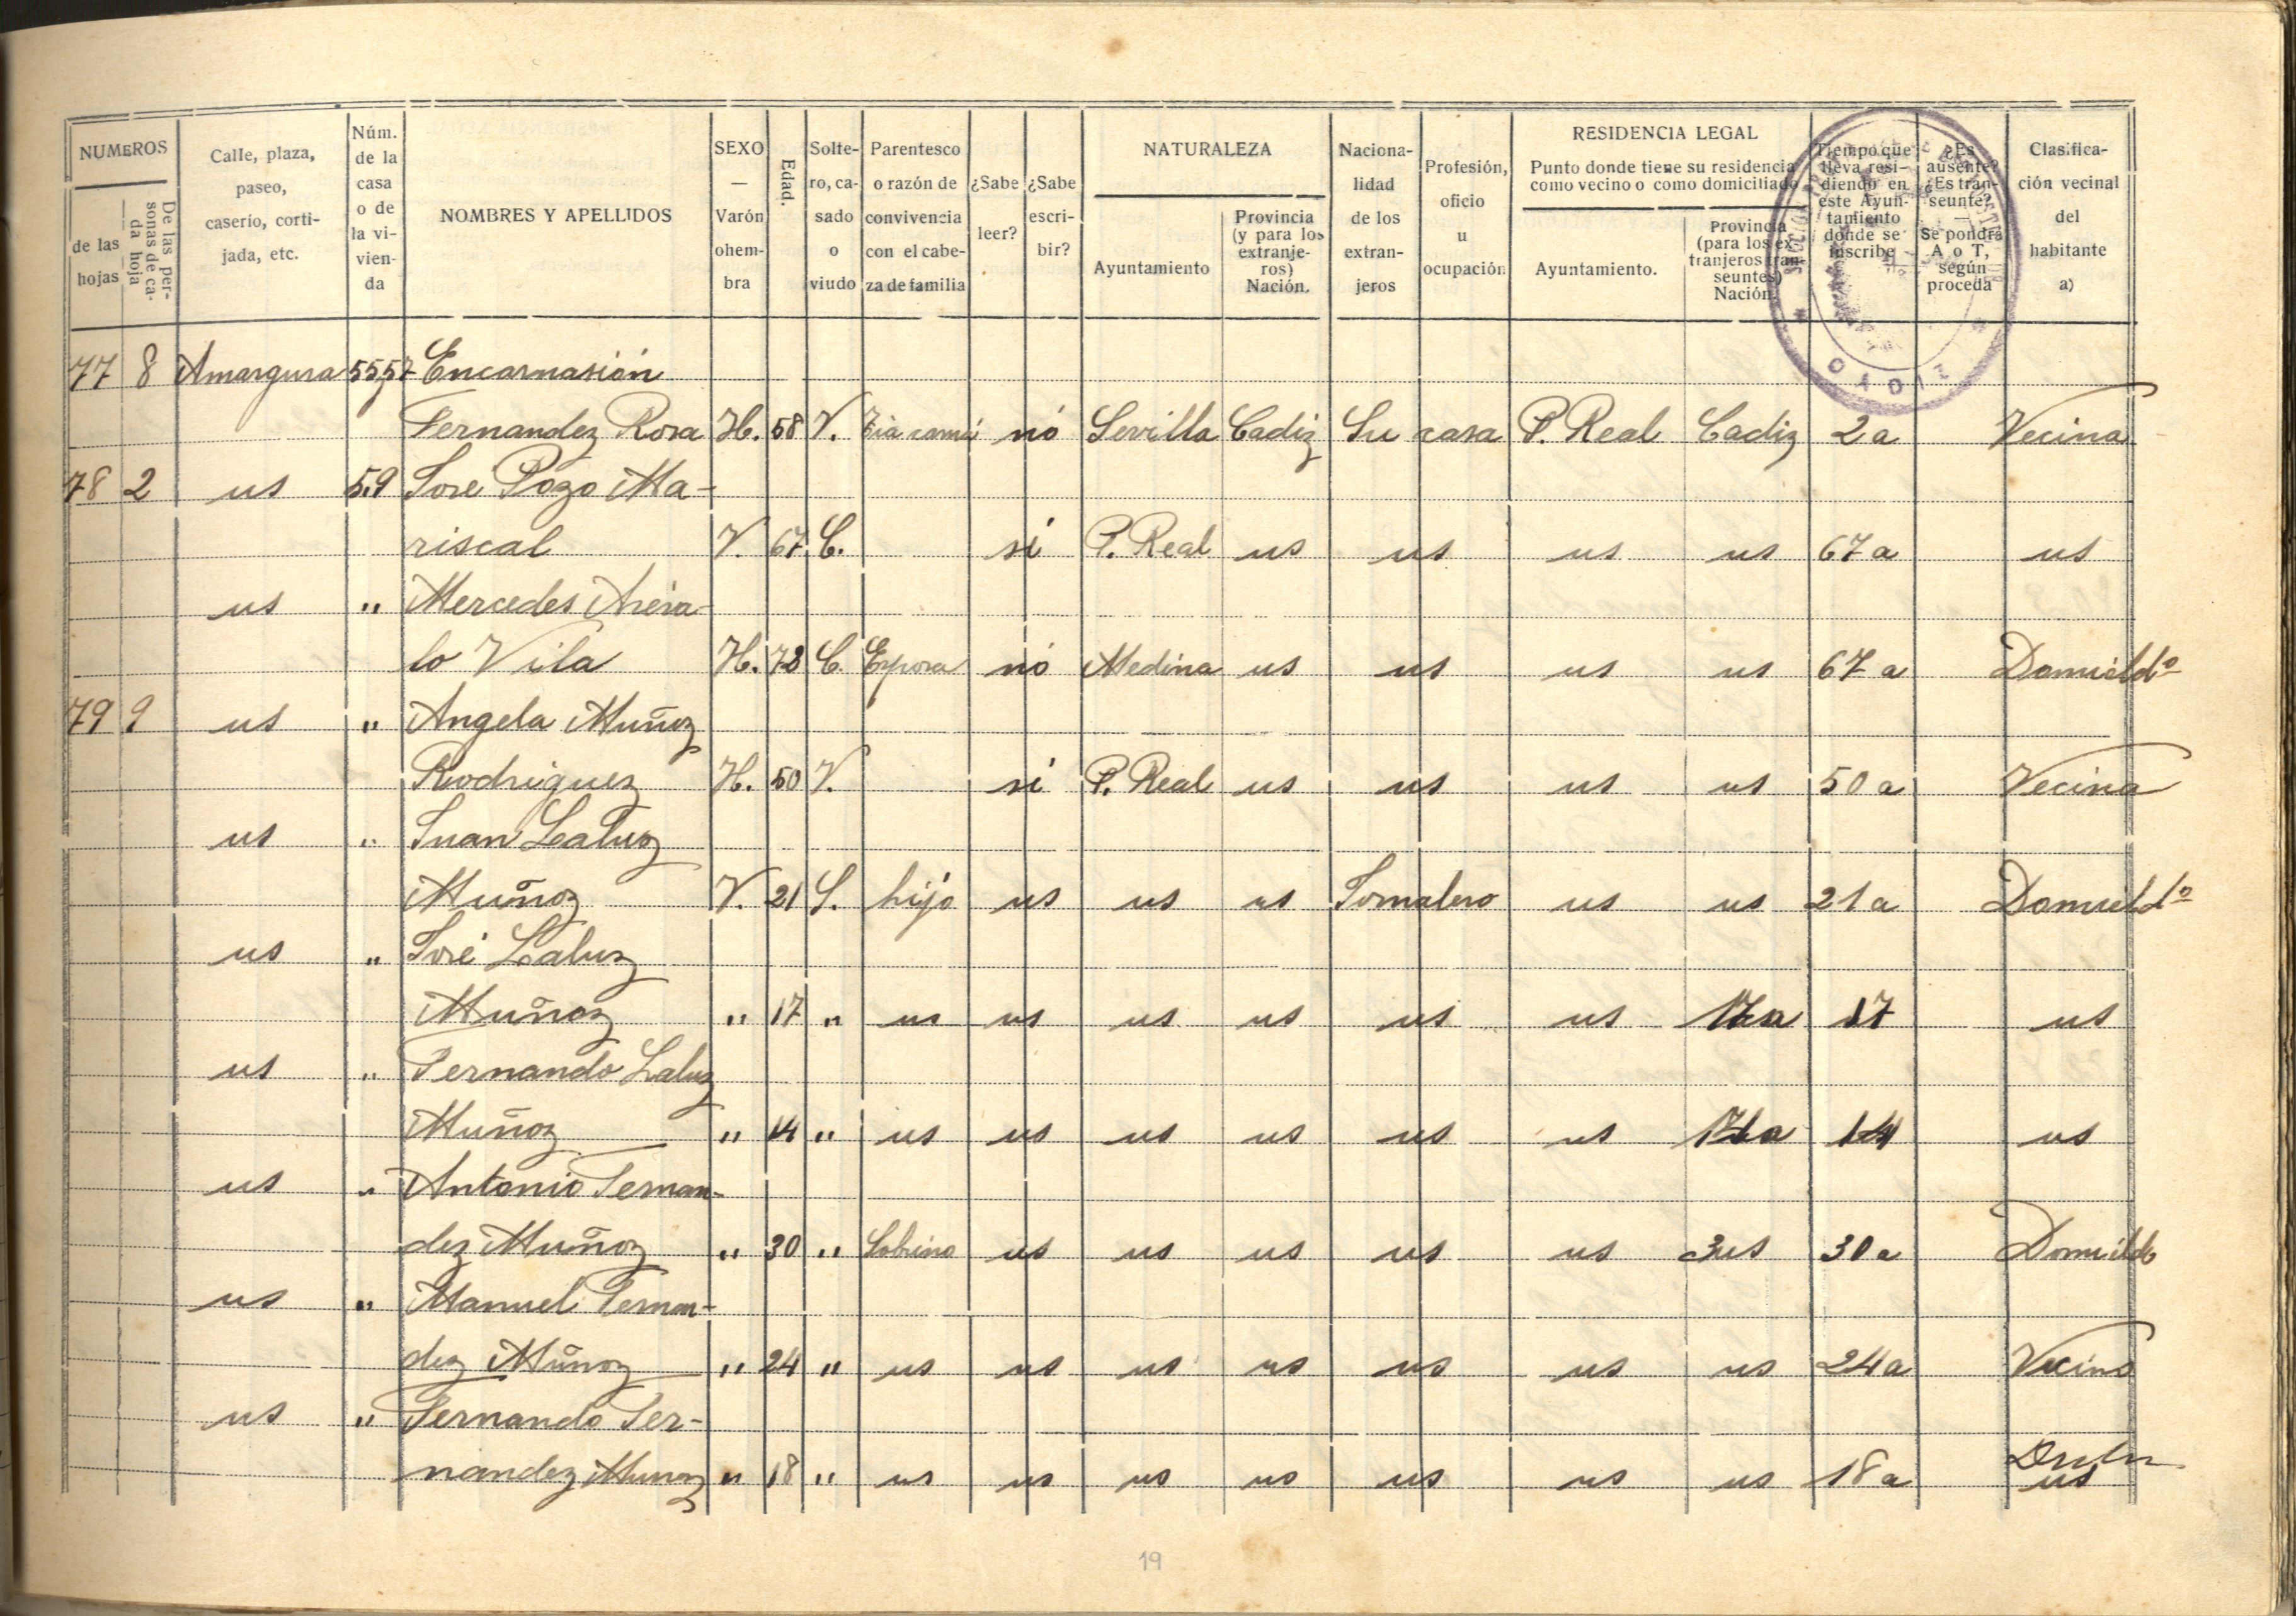 NUMEROS
de las hojas
De las personas de cada hoja
Calle, plaza, paseo, caserío, cortijada, etc.
Núm. de la casa o de la vivienda
NOMBRES Y APELLIDOS
SEXO — Varón ohembra
Edad.
Soltero, casado o viudo
Parentesco o razón de convivencia con el cabeza de familia
¿Sabe leer?
¿Sabe escribir?
NATURALEZA
Ayuntamiento
Provincia (y para los extranjeros) Nación.
Nacionalidad de los extranjeros
Profesión, oficio u ocupación
RESIDENCIA LEGAL
Punto donde tiene su residencia como vecino o como domiciliado
Ayuntamiento.
Provincia (para los extranjeros transeuntes) Nación.
Tiempo que lleva residiendo en este Ayuntamiento donde se inscribe
¿Es ausente? ¿Es transeunte? — Se pondrá A o T, según proceda
Clasificación vecinal del habitante a)
CADIZ
77 8 Amargura 55,57 Encarnasión
Fernandez Rosa H. 58 V. Tia nó Sevilla Cadiz Su casa P. Real Cadiz 2 a Vecina
78 2 us 59 Jose Pozo Ma-
riscal V. 67 C. si P. Real us us us us 67 a us
us " Mercedes Aréva-
lo Vila H. 78 C. Esposa nó Medina us us us us 67 a Domicild°
79 9 us " Angela Muñoz
Rodriguez H. 50 V. si P. Real us us us us 50 a Vecina
us " Juan Laluz
Muñoz V. 21 S. hijo us us us Jornalero us us 21 a Domicild°
us " José Laluz
Muñoz " 17 " us us us us us us 17 us
us " Fernando Laluz
Muñoz " 14 " us us us us us us 14 us
us " Antonio Fernan-
dez Muñoz " 30 " Sobrino us us us us us us 30 a Domicildo
us " Manuel Fernan-
dez Muñoz " 24 " us us us us us us us 24 a Vecino
us " Fernando Fer-
nandez Munoz " 18 " us us us us us us us 18 a us
19